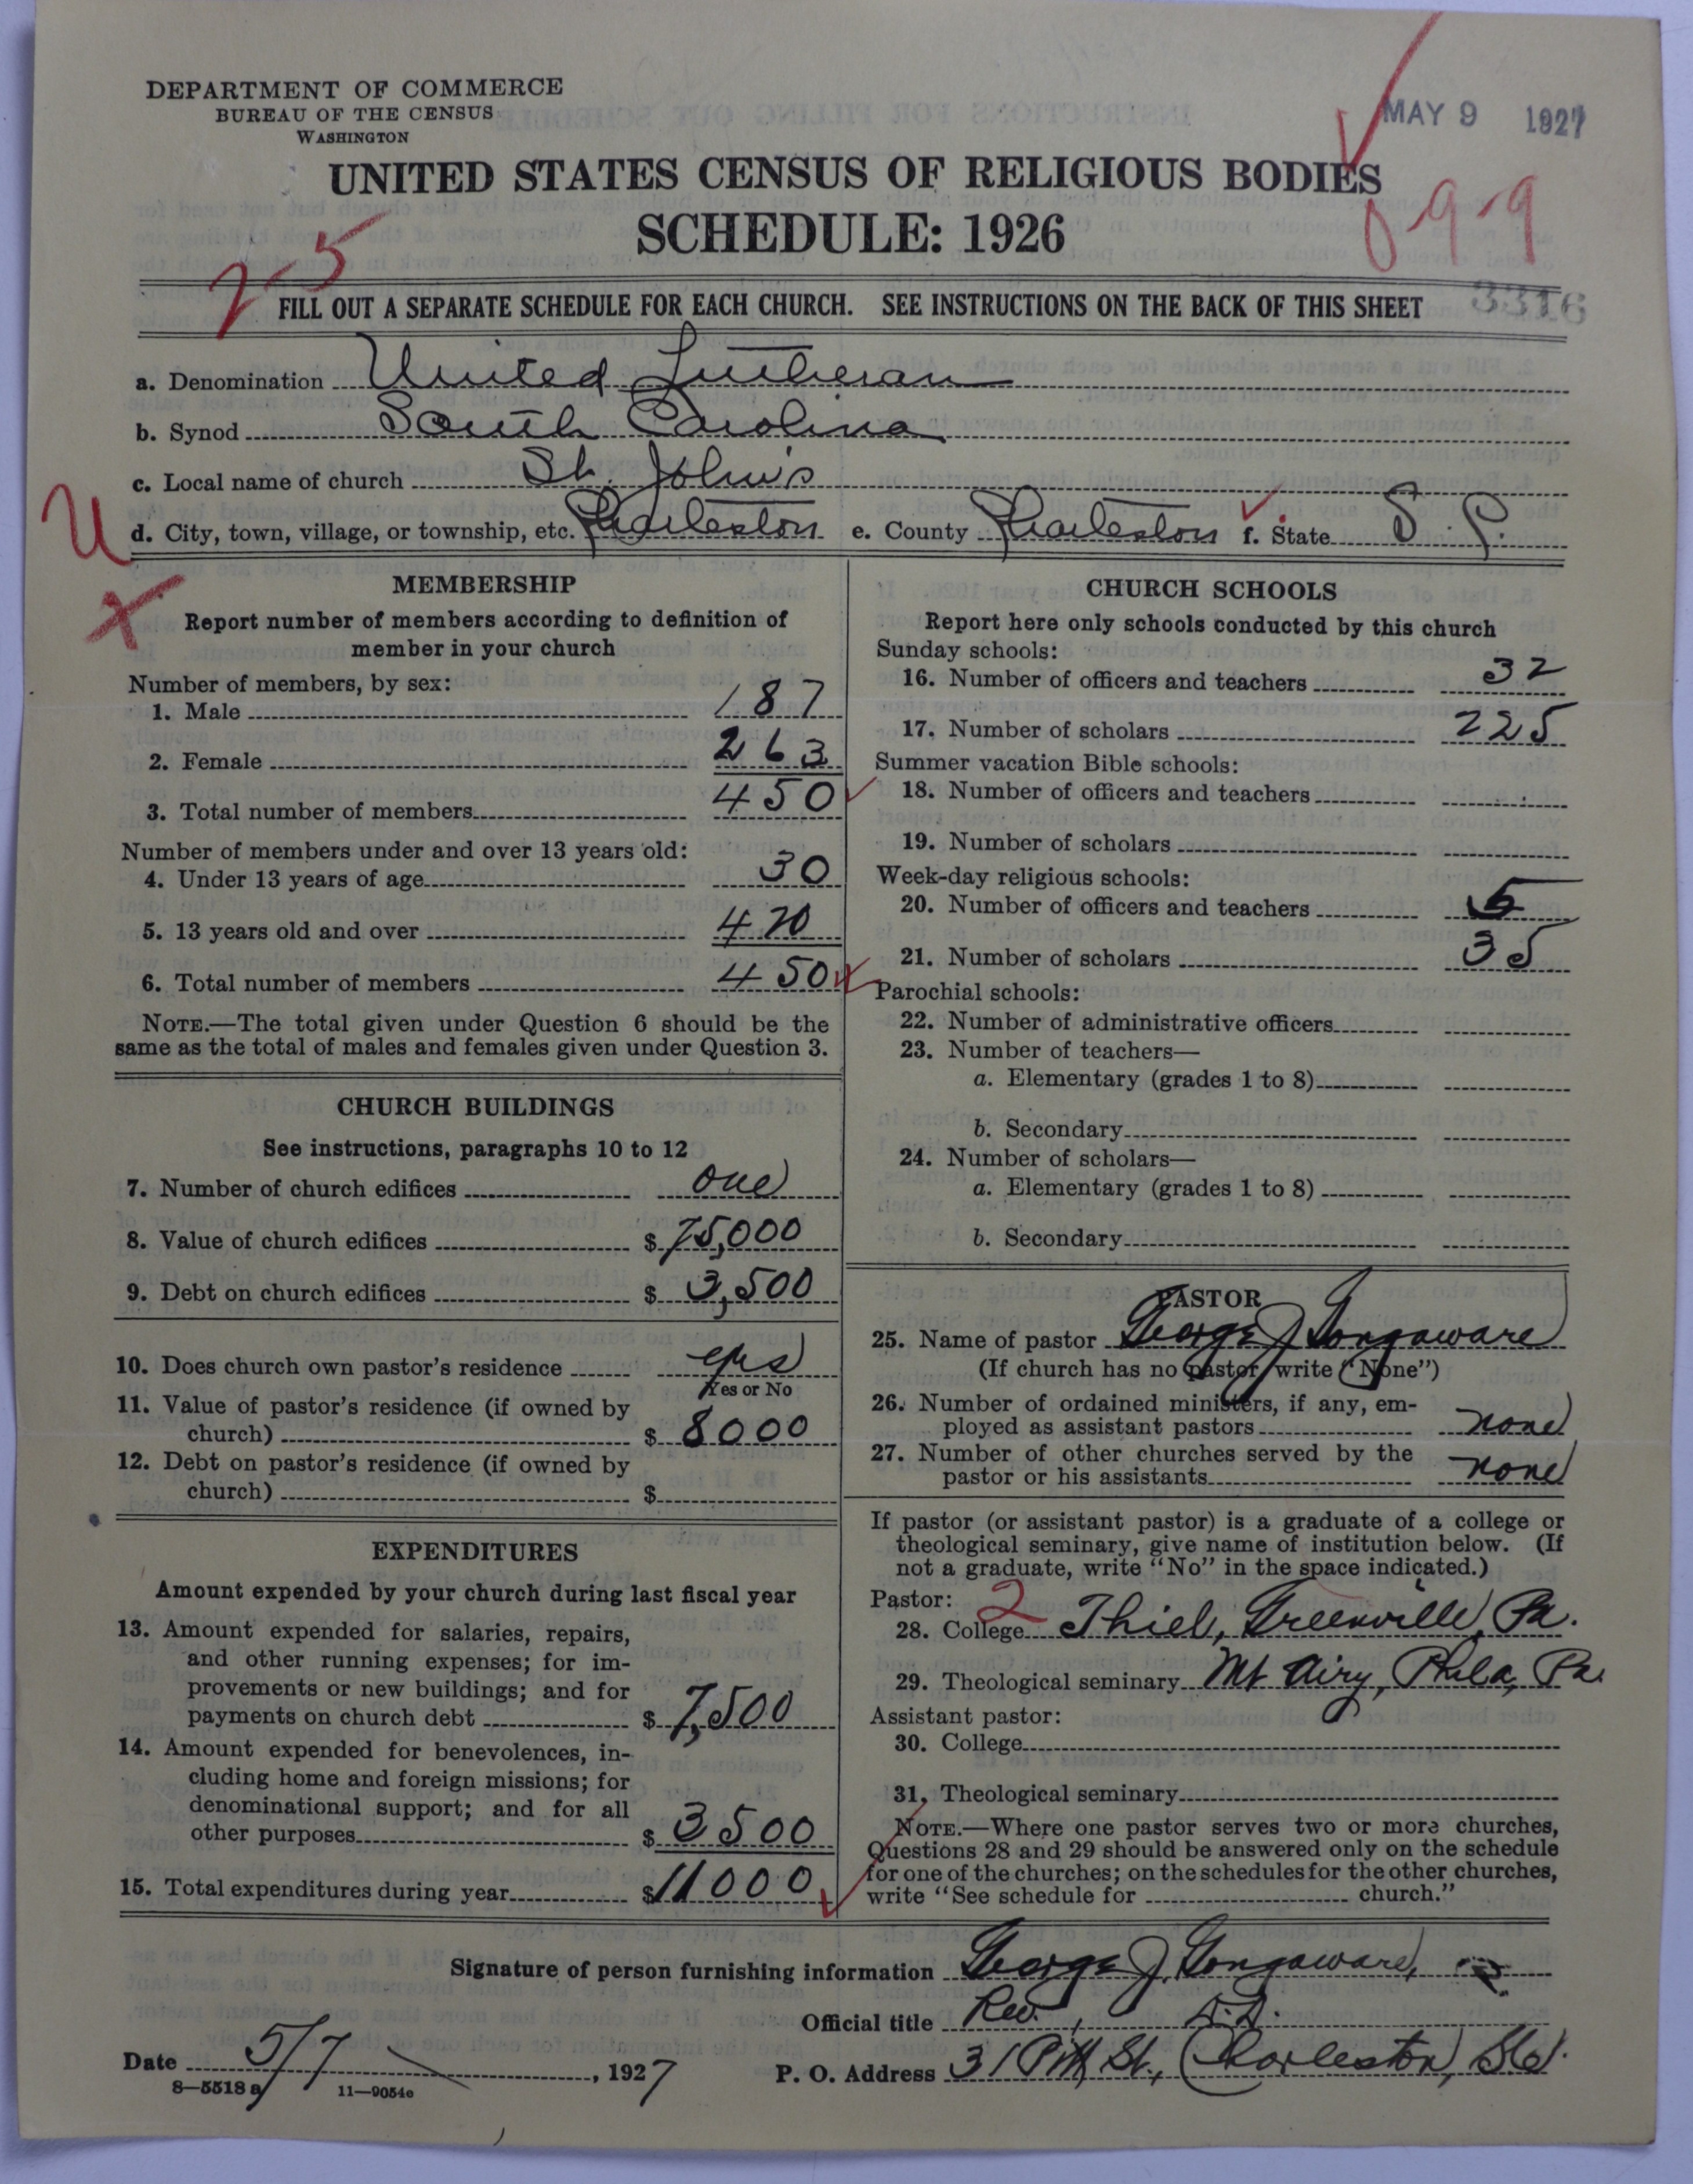 DEPARTMENT OF COMMERCE
BUREAU OF THE CENSUS
WASHINGTON
MAY 9 1927
UNITED STATES CENSUS OF RELIGIOUS BODIES
SCHEDULE: 1926
2-5
0-9-9
FILL OUT A SEPARATE SCHEDULE FOR EACH CHURCH. SEE INSTRUCTIONS ON THE BACK OF THIS SHEET
3316
a. Denomination United Lutheran
b. Synod South Carolina
c. Local name of church St. John's
U
d. City, town, village, or township, etc. Charleston e. County Charleston f. State S. C.
X
MEMBERSHIP
Report number of members according to definition of
member in your church
Number of members, by sex:
1. Male 187
2. Female 263
3. Total number of members 450
Number of members under and over 13 years old:
4. Under 13 years of age 30
5. 13 years old and over 420
6. Total number of members 450
NOTE.—The total given under Question 6 should be the
same as the total of males and females given under Question 3.
CHURCH BUILDINGS
See instructions, paragraphs 10 to 12
7. Number of church edifices one
8. Value of church edifices $ 75,000
9. Debt on church edifices $ 3,500
10. Does church own pastor's residence yes
Yes or No
11. Value of pastor's residence (if owned by
church) $ 8000
12. Debt on pastor's residence (if owned by
church) $
EXPENDITURES
Amount expended by your church during last fiscal year
13. Amount expended for salaries, repairs,
and other running expenses; for im-
provements or new buildings; and for
payments on church debt $ 7,500
14. Amount expended for benevolences, in-
cluding home and foreign missions; for
denominational support; and for all
other purposes $ 3500
15. Total expenditures during year $ 11000
CHURCH SCHOOLS
Report here only schools conducted by this church
Sunday schools:
16. Number of officers and teachers 32
17. Number of scholars 225
Summer vacation Bible schools:
18. Number of officers and teachers
19. Number of scholars
Week-day religious schools:
20. Number of officers and teachers 5
21. Number of scholars 35
Parochial schools:
22. Number of administrative officers
23. Number of teachers—
a. Elementary (grades 1 to 8)
b. Secondary
24. Number of scholars—
a. Elementary (grades 1 to 8)
b. Secondary
PASTOR
25. Name of pastor George J. Gongaware
(If church has no pastor, write "None")
26. Number of ordained ministers, if any, em-
ployed as assistant pastors none
27. Number of other churches served by the
pastor or his assistants none
If pastor (or assistant pastor) is a graduate of a college or
theological seminary, give name of institution below. (If
not a graduate, write "No" in the space indicated.)
Pastor: 2
28. College Thiel, Greenville, Pa.
29. Theological seminary Mt Airy, Phila, Pa.
Assistant pastor:
30. College
31. Theological seminary
NOTE.—Where one pastor serves two or more churches,
Questions 28 and 29 should be answered only on the schedule
for one of the churches; on the schedules for the other churches,
write "See schedule for church."
Signature of person furnishing information George J. Gongaware,
Official title Rev., D.D.
Date 5/7, 1927 P. O. Address 31 Pitt St., Charleston, S.C.
8—5518 a 11—9054e